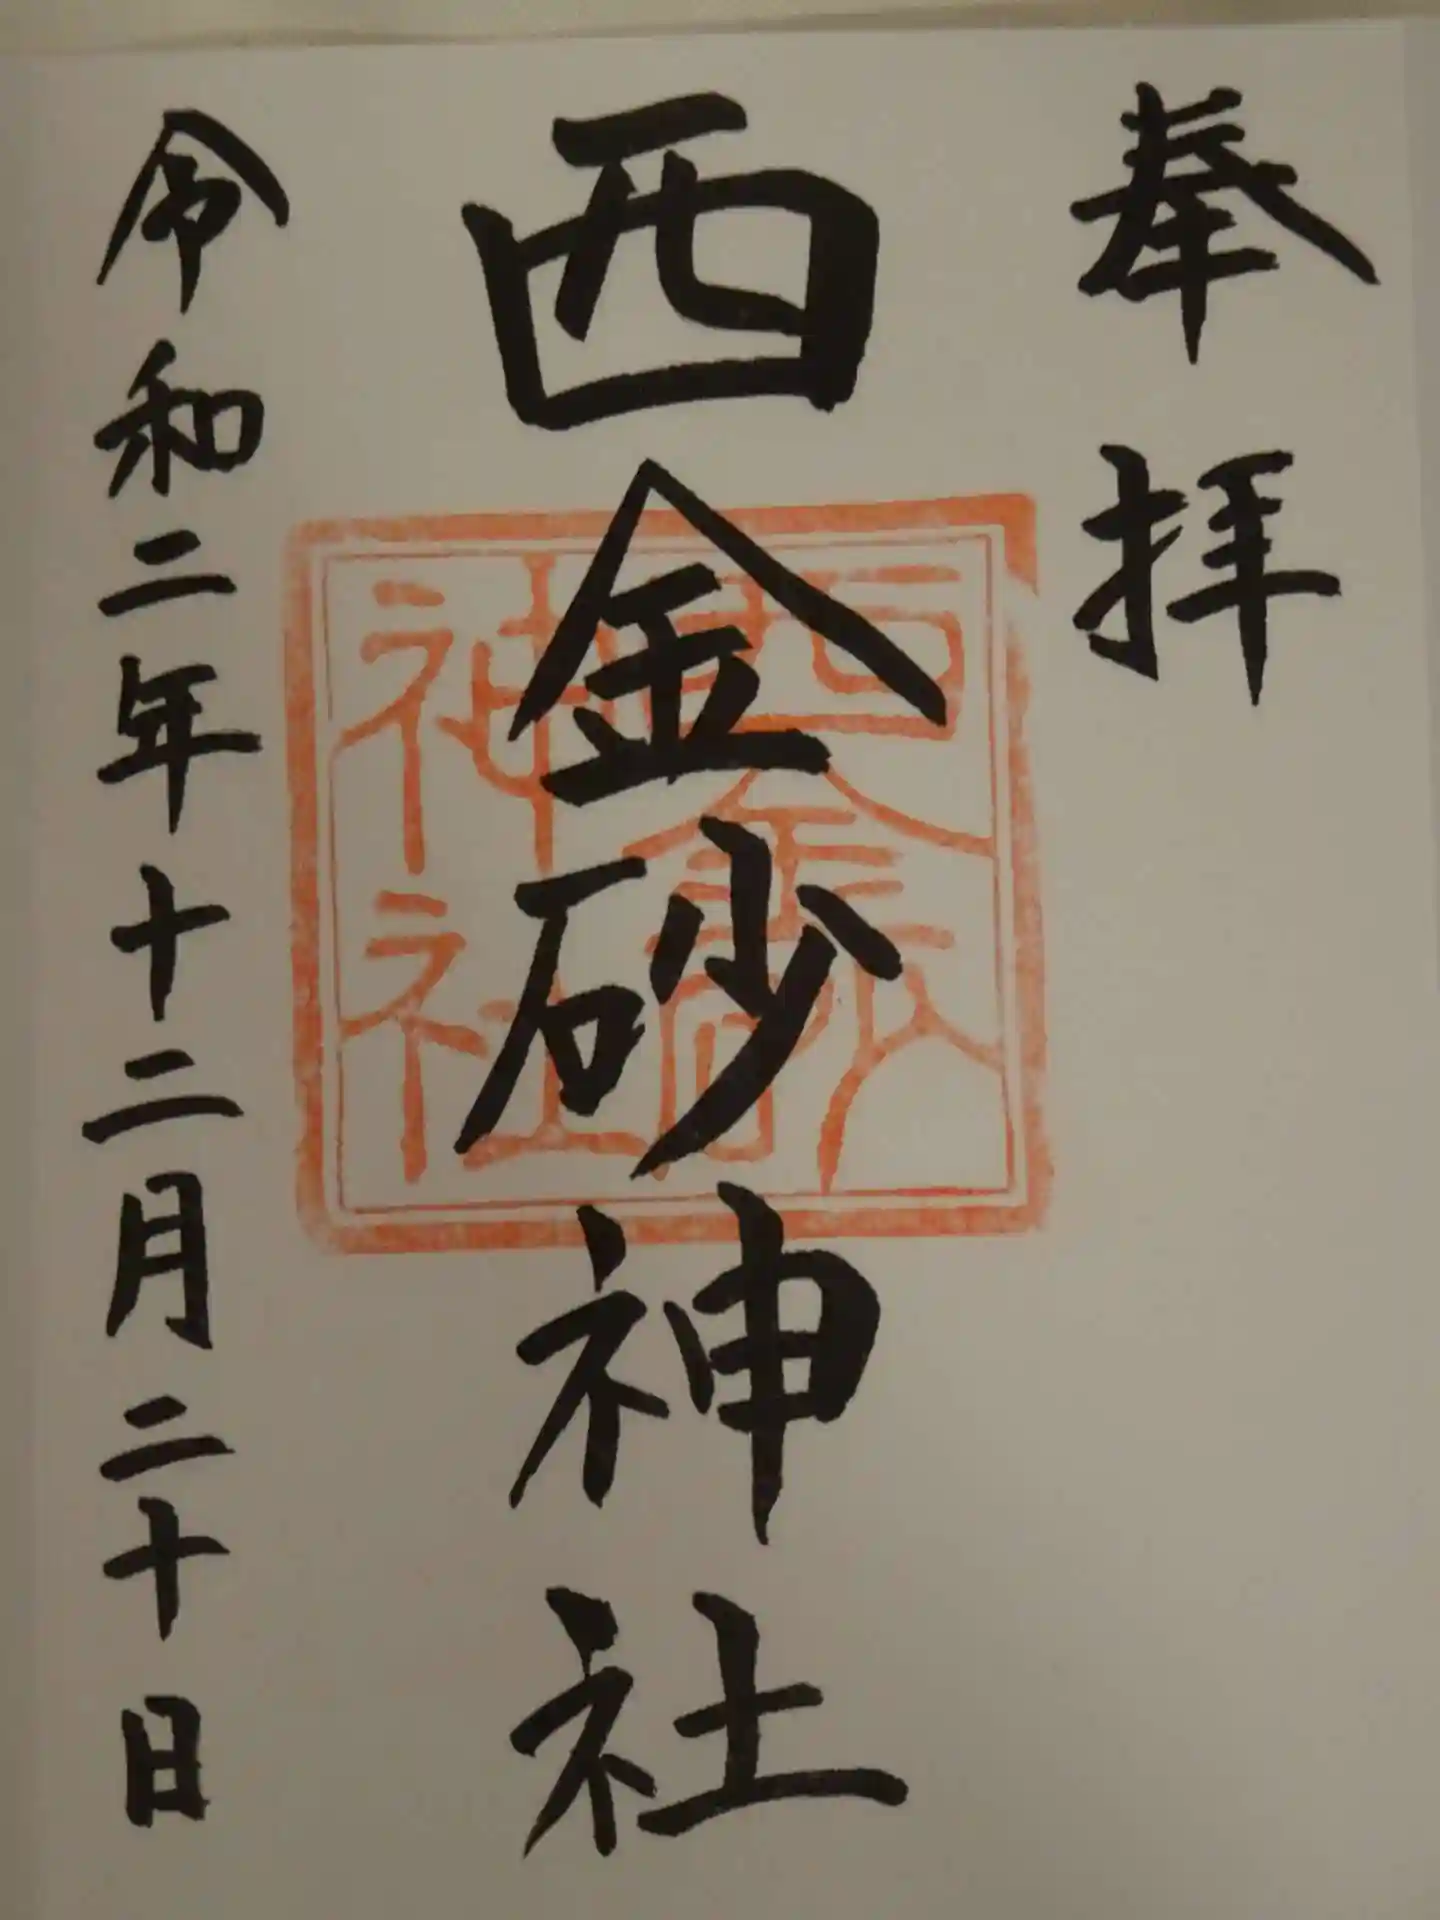 奉拝
西金砂神社
西金砂
神社
令和二年十二月二十日